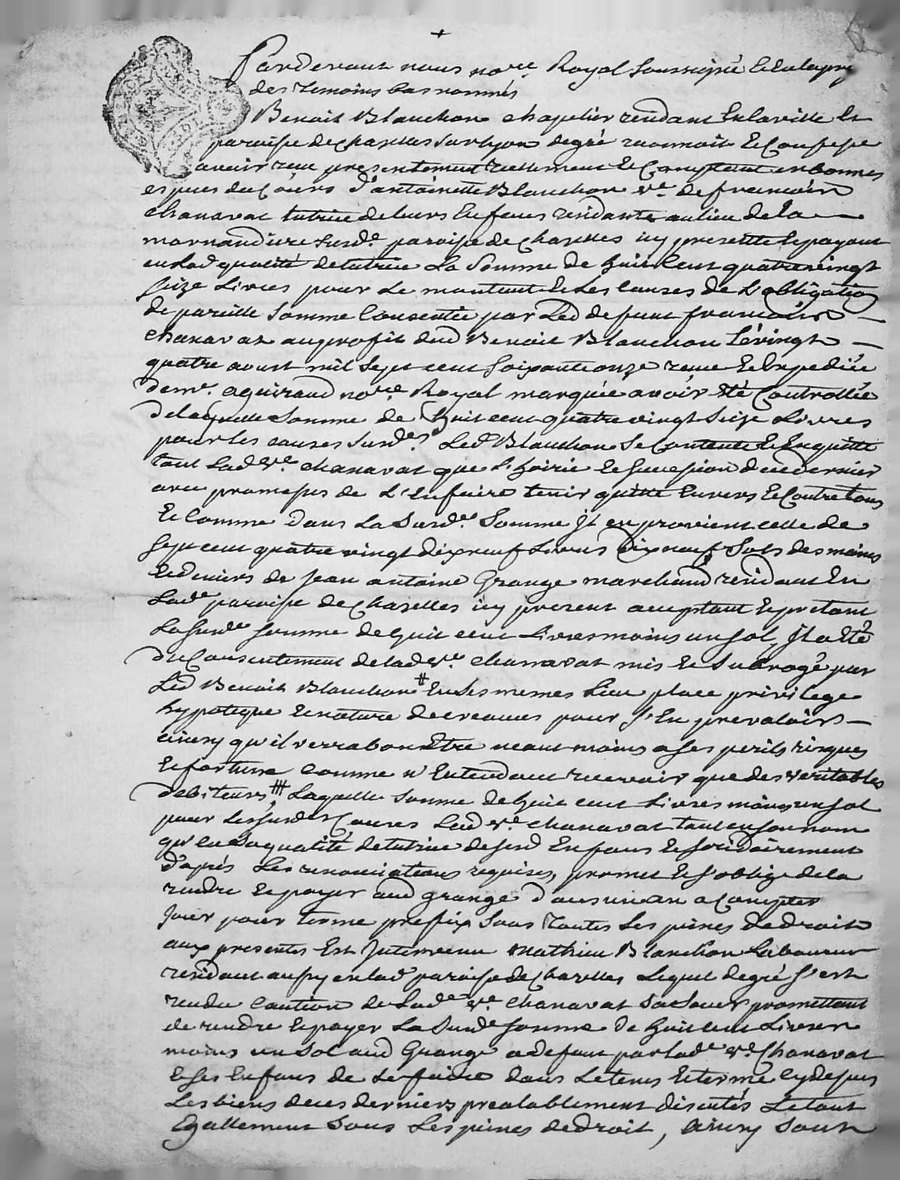 Pardevant nous no.re Royal soussigné et en la pnce
des temoins bas nommés
Benoit Blanchon chapelier residant en la ville et
paroisse de chazelles sur lyon de gré reconnoit et Confesse
avoir reçu presentement reellement et Comptant en bonnes
especes du Cours d'antoinette Blanchon v.e de francois
chanavat tutrice de leurs Enfans residante au lieu de la
marnandiere susd.e paroisse de chazelles icy presente et payant
en lad. qualité de tutrice La Somme de huit Cent quatre vingt
seize Livres pour Le montant et Les causes de L'obligation
de pareille Somme Consentie par Led. defunt francois
chanavat au profit dud Benoit Blanchon Le vingt
quatre aoust mil sept cent soixante onze reçue et Expediée
de m.e aguiraud no.re Royal marquée avoir été Controllée
de laquelle Somme de huit cent quatre vingt seize Livres
pour les causes susd.es Led. Blanchon se Contente et En quitte
tant Lad. v.e chanavat que l'hoirie et succession de ce dernier
avec promesses de L'En faire tenir quitte Envers et Contre tous
Et Comme dans La Susd.e Somme Jl en provient celle de
sept cent quatre vingt dix neuf Livres dix neuf Sols des mains
et deniers de Jean antoine Grange marchand residant En
Lad.e paroisse de chazelles icy present acceptant et pretant
La susd.e somme de huit cent Livres moins un sol, Jl a Eté
du Consentement de lad. v.e chanavat mis et Subrogé par
Led Benoit Blanchon # En Ses memes lieu place privilege
hypoteque et nature de creances pour s'En prevaloir
ainsy qu'il verra bon Etre neant moins a ses perils risques
et fortune comme n'Entendant recevoir que des veritables
debiteurs, Laquelle Somme de huit cent Livres moins un sol
pour les susd.es Causes Lad v.e chanavat tant en son nom
qu'en La qualité de tutrice de sesd Enfans et solidairement
d'après Les renonciations requises, promet et s'oblige de la
rendre et payer aud grange dans un an a Compter
Jour pour terme prefix sous toutes Les peines de droit
aux presentes Est Jntervenu mathieu Blanchon Laboureur
residant au en lad. paroisse de Chazelles Lequel de gré s'est
rendu Caution de Lad.e v.e chanavat sa soeur promettant
de rendre et payer La Susd.e somme de huit cent Livres
moins un Sol aud Grange a defaut par lad.e v.e Chanavat
et ses Enfans de Le faire dans Le tems et terme cy dessus
Les biens de ces derniers prealablement discutés Le tout
Egallement sous Les peines de droit, ainsy sont